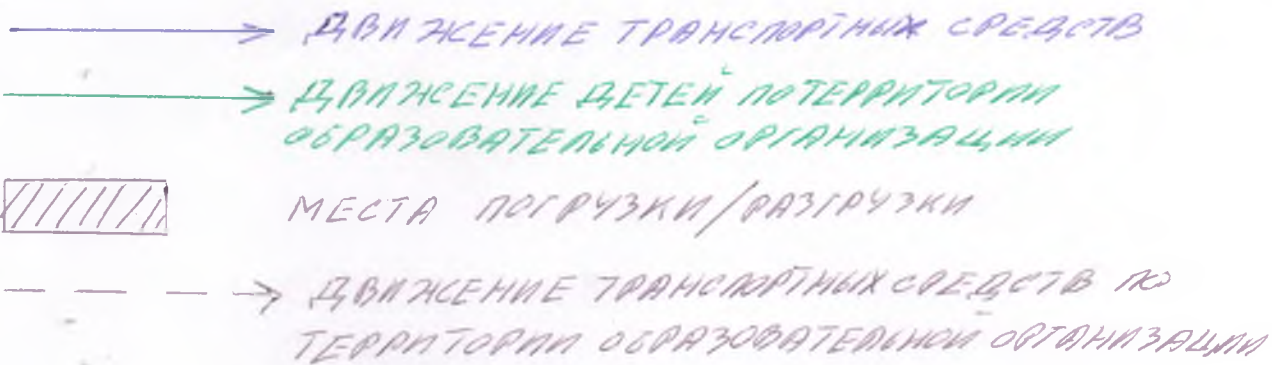 ДВИЖЕНИЕ ТРАНСПОРТНЫХ СРЕДСТВ
ДВИЖЕНИЕ ДЕТЕЙ ПО ТЕРРИТОРИИ
ОБРАЗОВАТЕЛЬНОЙ ОРГАНИЗАЦИИ
МЕСТА ПОГРУЗКИ/РАЗГРУЗКИ
ДВИЖЕНИЕ ТРАНСПОРТНЫХ СРЕДСТВ ПО
ТЕРРИТОРИИ ОБРАЗОВАТЕЛЬНОЙ ОРГАНИЗАЦИИ